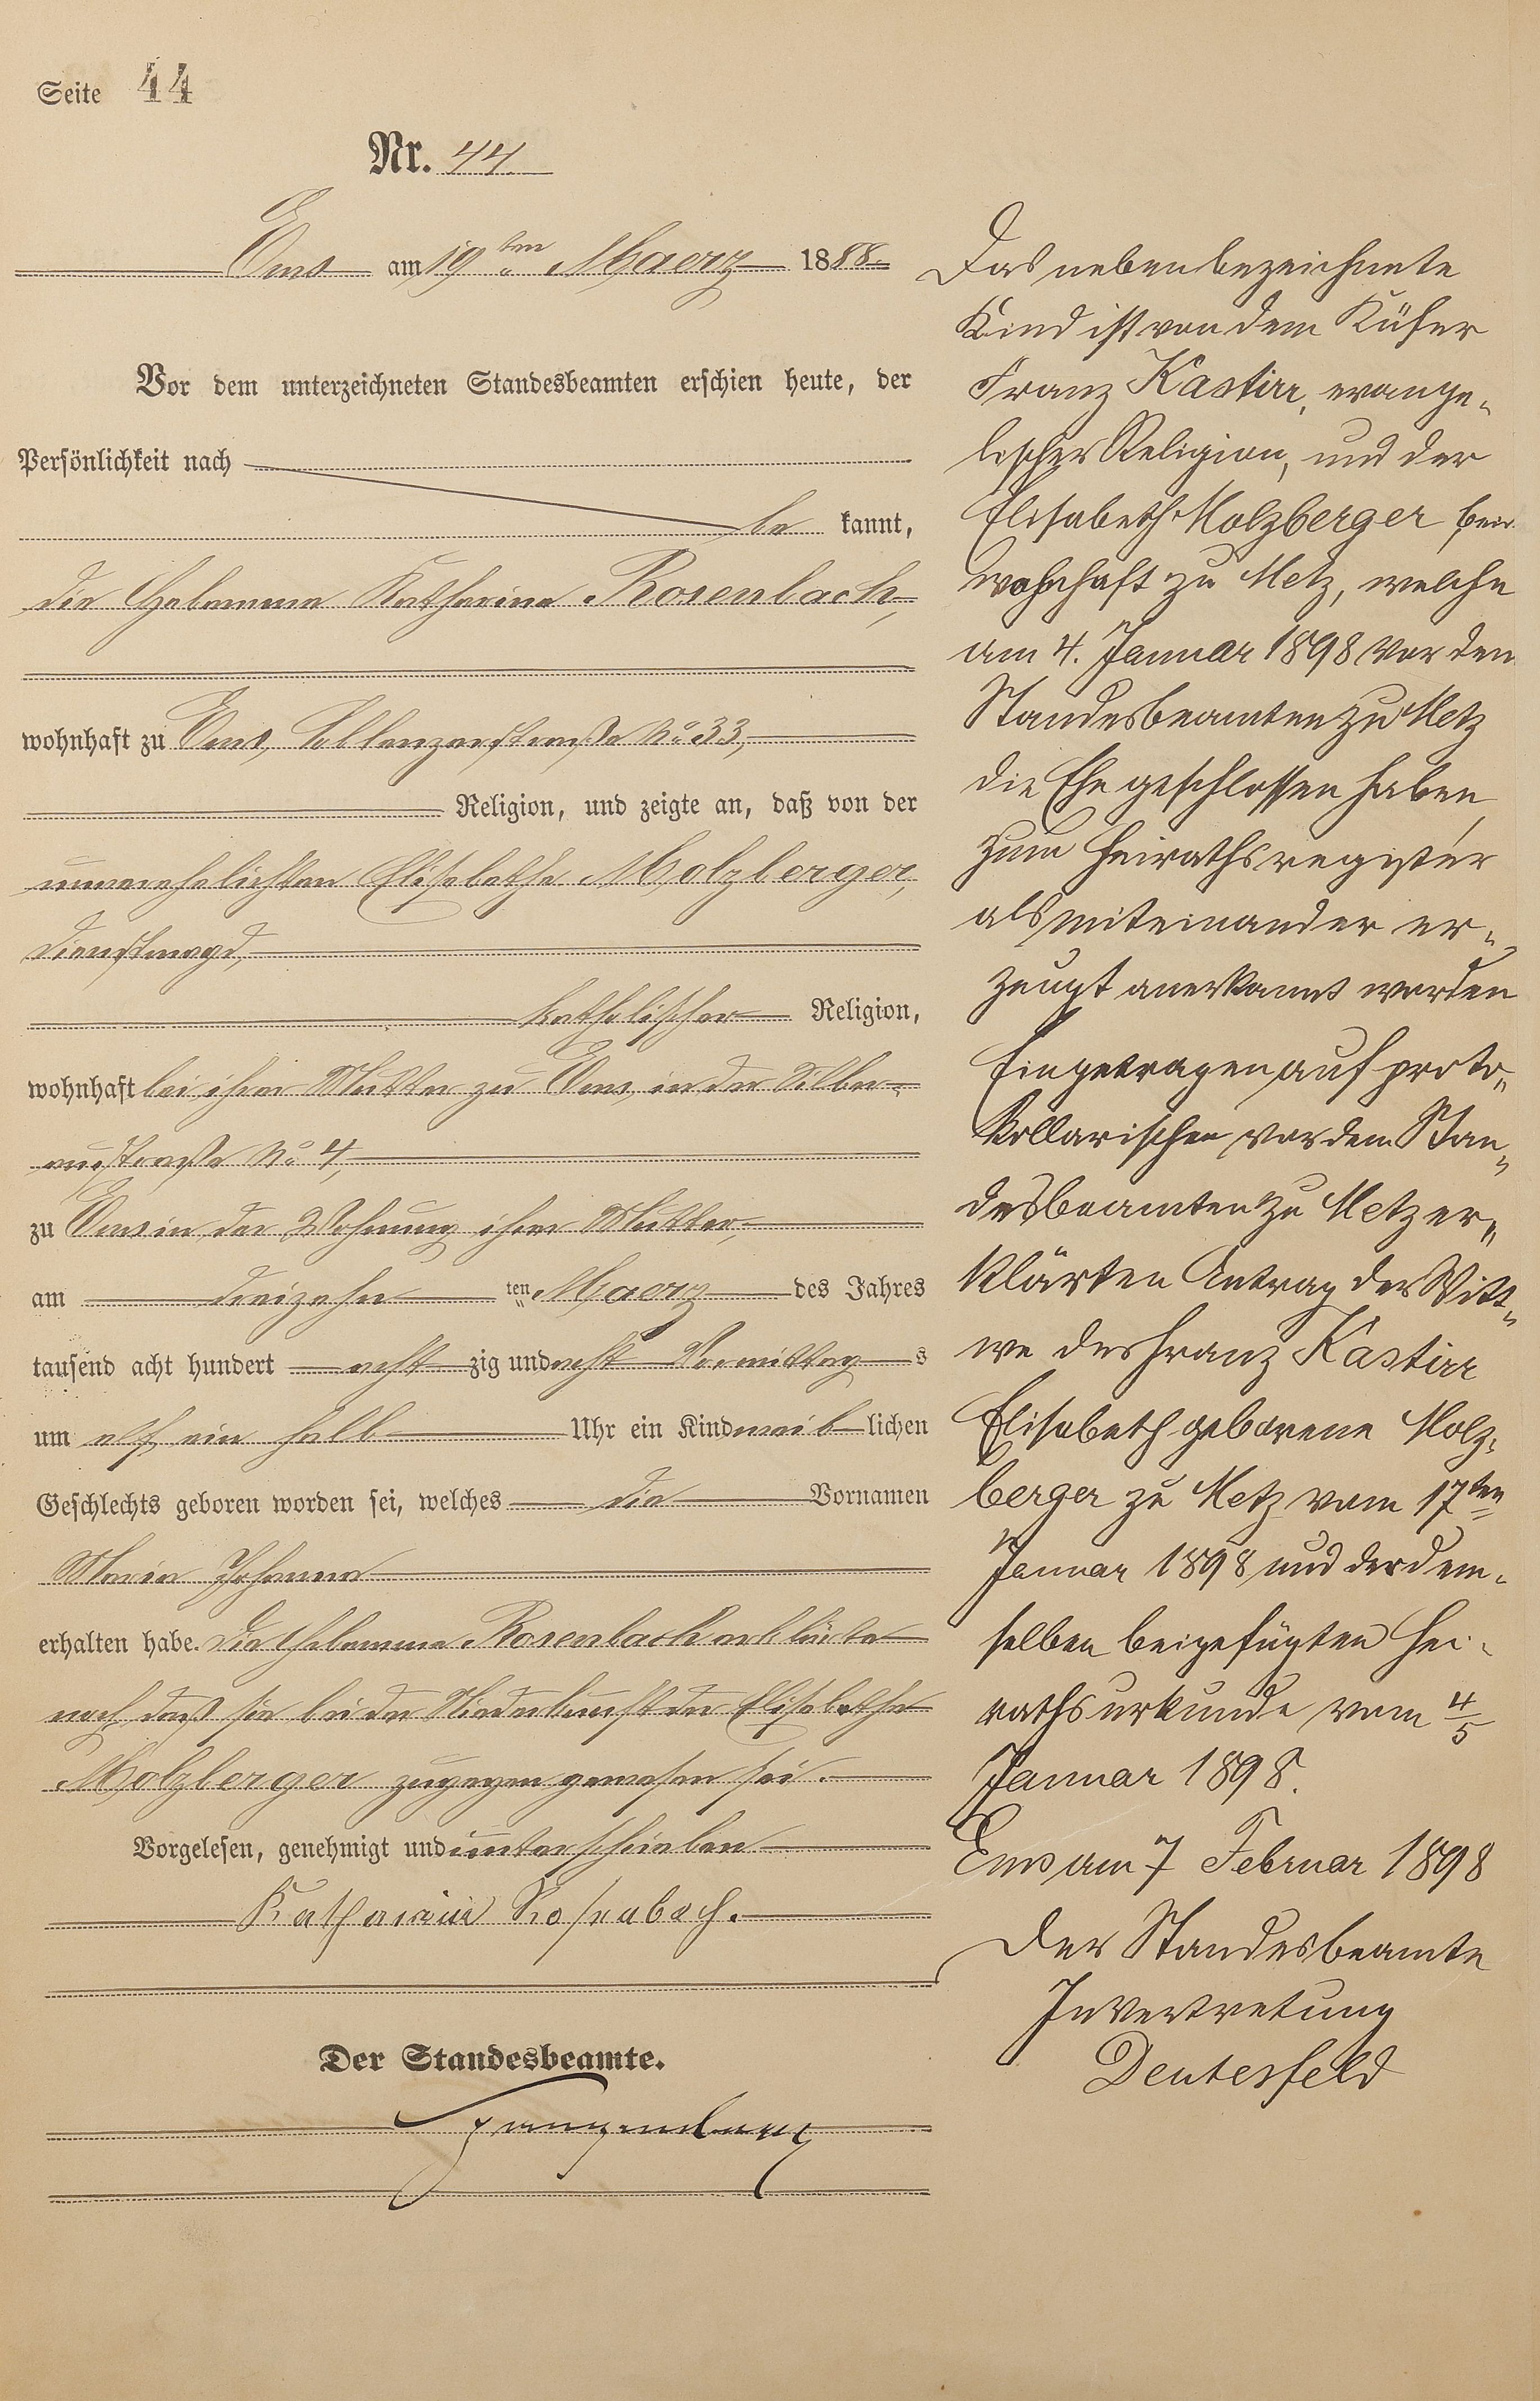 Seite 44
Nr. 44.
Ems am 19ten Maerz 1888.
Vor dem unterzeichneten Standesbeamten erschien heute, der
Persönlichkeit nach
be kannt,
die Hebamme Katharina Rosenbach,
wohnhaft zu Ems, Coblenzerstraße No 33,
Religion, und zeigte an, daß von der
unverehelichten Elisabetha Molzberger,
Dienstmagd,
katholischer Religion,
wohnhaft bei ihrer Mutter zu Ems, in der Silber-
austraße No 4,
zu Ems in der Wohnung ihrer Mutter,
am dreizehn ten Maerz des Jahres
tausend acht hundert acht zig und acht Vormittag s
um elf ein halb Uhr ein Kind weib lichen
Geschlechts geboren worden sei, welches die Vornamen
Maria Johanna
erhalten habe. Die Hebamme Rosenbach erklärte
noch, daß sie bei der Niederkunft der Elisabetha
Molzberger zugegen gewesen sei.
Vorgelesen, genehmigt und unterschrieben
Katharina Rosenbach.
Der Standesbeamte.
Das nebenbezeichnete
Kind ist von dem Küfer
Franz Kastirr, evange-
lischer Religion, und der
Elisabeth Molzberger, beide
wohnhaft zu Metz, welche
am 4. Januar 1898 vor dem
Standesbeamten zu Metz
die Ehe geschlossen haben,
zum Heirathsregister
als miteinander er-
zeugt anerkannt worden
Eingetragen auf proto-
kollarischen vor dem Stan-
desbeamten zu Metz er-
klärten Antrag der Witt-
we des Franz Kastirr
Elisabeth geborene Molz-
berger zu Metz vom 17ten
Januar 1898 und der dem-
selben beigefügten Hei-
rathsurkunde vom 4/5
Januar 1898.
Ems am 7 Februar 1898
Der Standesbeamte
In Vertretung
Deutesfeld